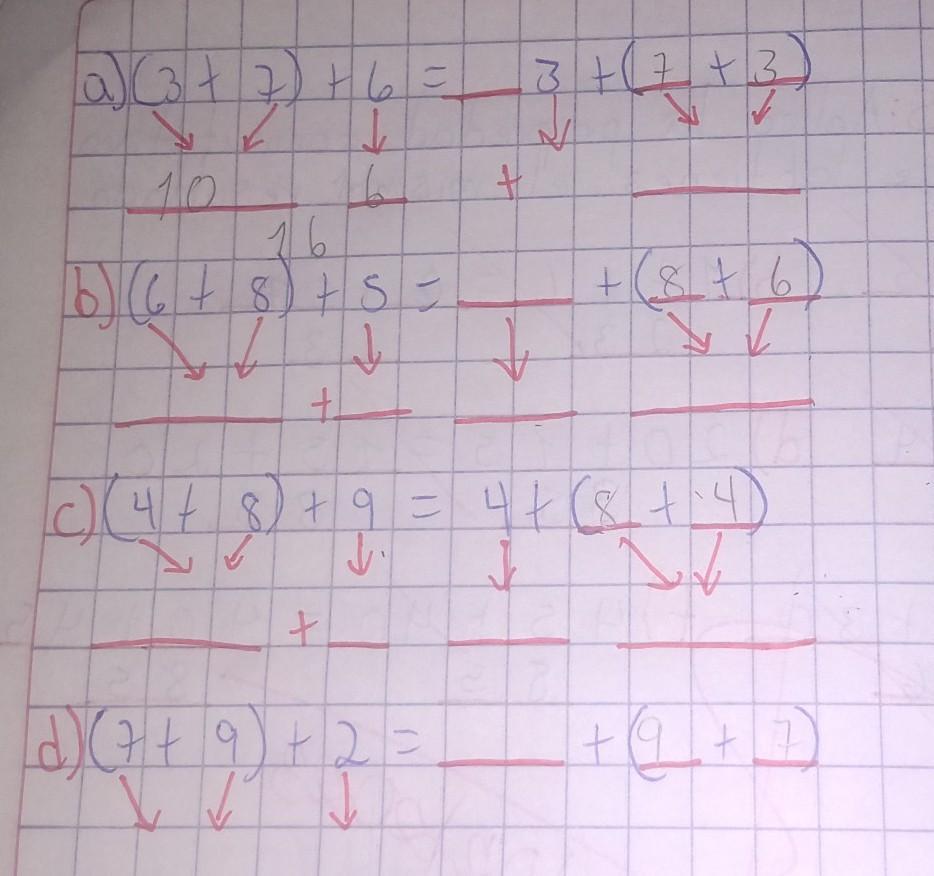 a) (3 + 7) + 6 = ___ 3 + (7 + 3)
10 6 + ___
16
b) (6 + 8) + 5 = ___ + (8 + 6)
___ + ___ ___ ___
c) (4 + 8) + 9 = 4 + (8 + 4)
___ + ___ ___ ___
d) (7 + 9) + 2 = ___ + (9 + 7)